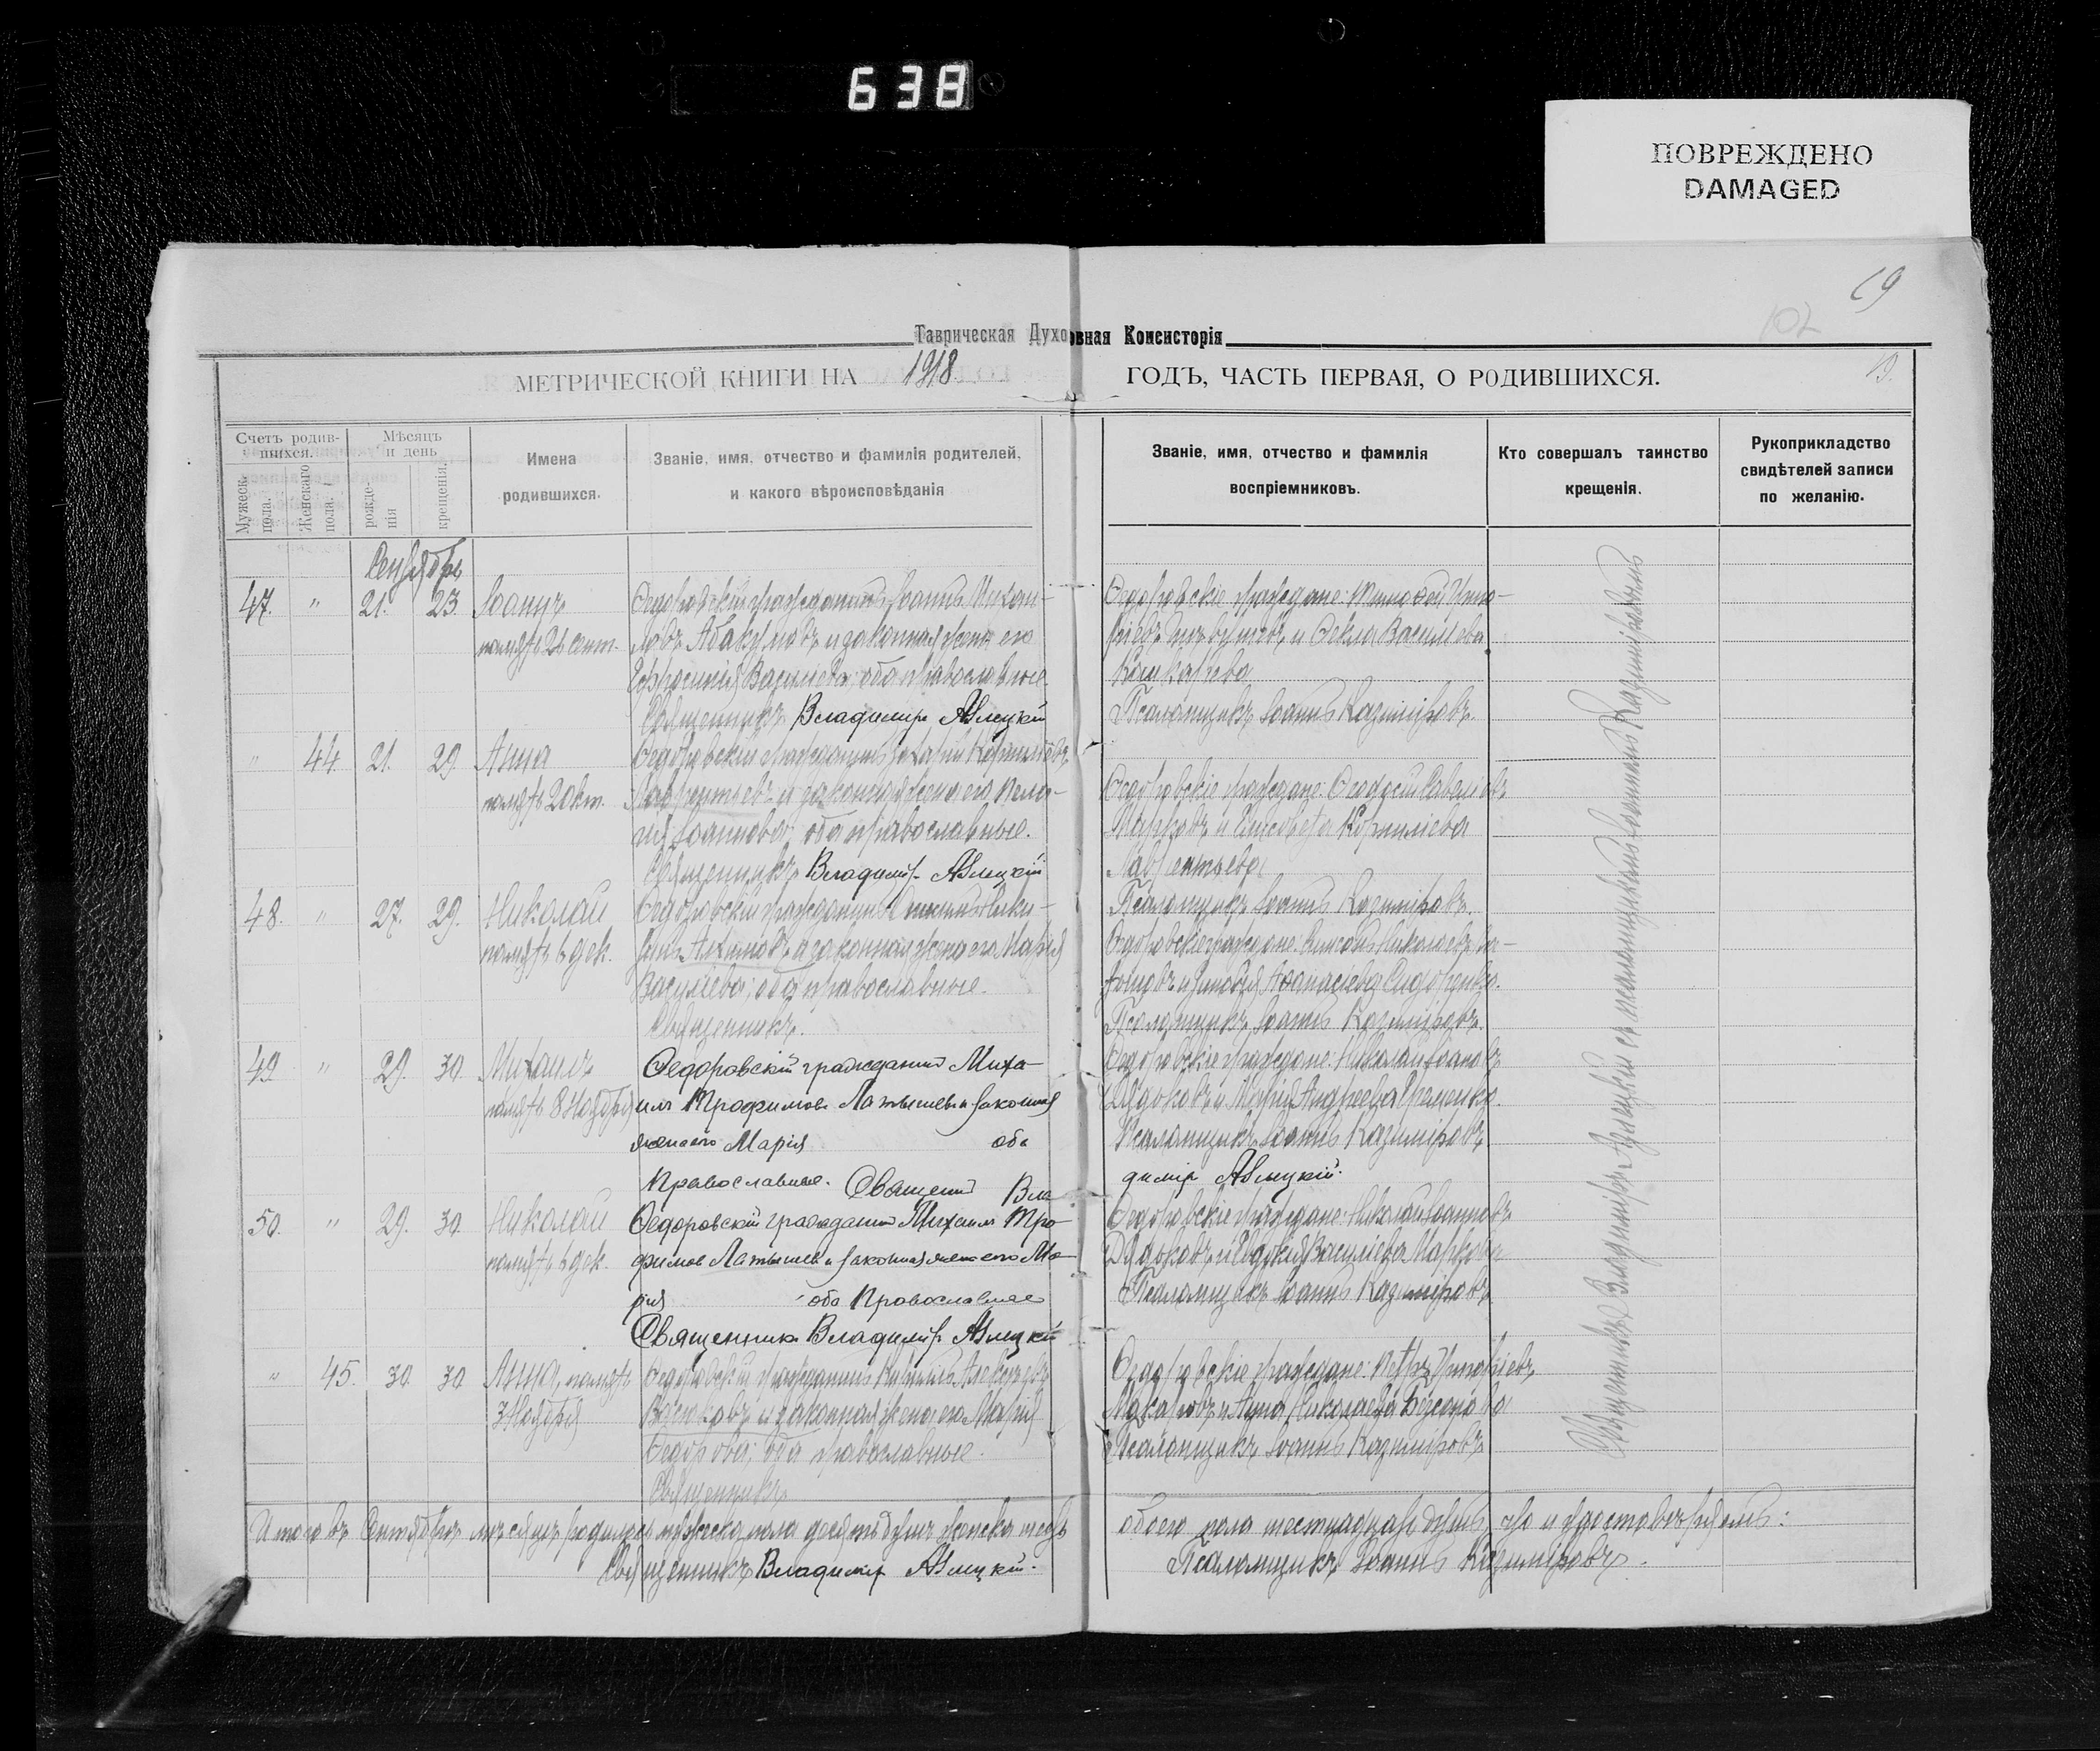 638
ПОВРЕЖДЕНО
DAMAGED
19
102
Таврическая Духовная Консисторія
МЕТРИЧЕСКОЙ КНИГИ НА 1918 ГОДЪ, ЧАСТЬ ПЕРВАЯ, О РОДИВШИХСЯ.
19.
Счетъ родив-
шихся.
Мужеск. пола.
Женскаго пола.
Мѣсяцъ
и день
рожде-
нія
крещенія.
Имена
родившихся.
Званіе, имя, отчество и фамилія родителей,
и какого вѣроисповѣданія
Званіе, имя, отчество и фамилія
воспріемниковъ.
Кто совершалъ таинство
крещенія.
Рукоприкладство
свидѣтелей записи
по желанію.
Сентябрь
47. " 21. 23. Іоаннъ
память 26 сент.
Ѳедоровскій гражданинъ Іоаннъ Михаи-
ловъ Абакумовъ и законная жена его
Ефросинія Васильева; оба православные.
Священникъ Владиміръ
Ѳедоровскіе граждане: Тимоѳей
и Ѳекла Васильева
Псаломщикъ Іоаннъ Казиміровъ.
" 44. 21. 29. Анна
память 2 окт.
Ѳедоровскій гражданинъ Захарій Корниліевъ
Лаврентьевъ и законная жена его Пела-
гія Іоаннова; оба православные.
Священникъ Владиміръ
Ѳедоровскіе граждане: Ѳеодосій Савеліевъ
Марковъ и Елисавета Корниліева
Лаврентьева
Псаломщикъ Іоаннъ Казиміровъ.
48. " 27. 29. Николай
память 6 дек.
Ѳедоровскій гражданинъ
Акимовъ и законная жена его Марія
Васильева; оба православные.
Священникъ.
Ѳедоровскіе граждане: Николаевъ
Аѳанасіева Сидоренко.
Псаломщикъ Іоаннъ Казиміровъ.
49. " 29. 30. Михаилъ
память 8 Ноября
Ѳедоровскій гражданинъ Миха-
илъ Трофимовъ Латышевъ и законная
жена его Марія оба
Православные. Священникъ Вла
Ѳедоровскіе граждане: Николай Іоанновъ
Дядюковъ и Марія Андреева Яременко.
Псаломщикъ Іоаннъ Казиміровъ
диміръ
50. " 29. 30. Николай
память 6 дек.
Ѳедоровскій гражданинъ Михаилъ Тро-
фимовъ Латышевъ и законная жена его Ма-
рія оба Православные
Священникъ Владиміръ
Ѳедоровскіе граждане: Николай Іоанновъ
Дядюковъ и Евдокія Васильева Маркова
Псаломщикъ Іоаннъ Казиміровъ
" 45. 30. 30. Анна, память
3 Ноября
Ѳедоровскій гражданинъ Кириллъ Алексѣевъ
и законная жена его Марія
Ѳедорова; оба православные.
Священникъ
Ѳедоровскіе граждане: Петръ Григоріевъ
Макаровъ и Анна Николаева
Псаломщикъ Іоаннъ Казиміровъ
Священникъ Владиміръ съ псаломщикомъ Іоанномъ Казиміровымъ
Итого въ Сентябрѣ мѣсяцѣ родилось мужеска пола десять душъ женска шесть
обоего пола шестнадцать душъ, что и удостовѣряемъ:
Священникъ Владиміръ
Псаломщикъ Іоаннъ Казиміровъ.